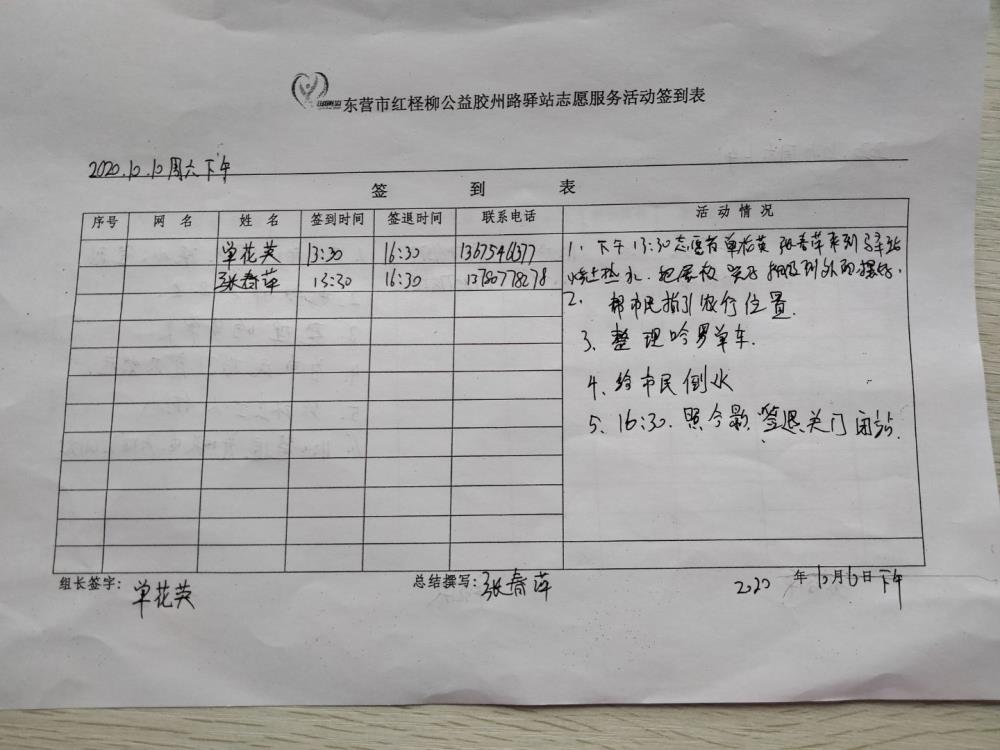 东营市红柽柳公益胶州路驿站志愿服务活动签到表
2020.10.10周六下午
签 到 表
序号 网 名 姓 名 签到时间 签退时间 联系电话 活 动 情 况
单花英 13:30 16:30
张春萍 13:30 16:30 13780778278
1. 下午13:30志愿者单花英 张春萍来到驿站
烧上热水.把展板
2. 帮市民指引农行位置.
3、整理哈罗单车.
4、给市民倒水
5、16:30.照合影.签退关门闭站.
组长签字: 单花英 总结撰写: 张春萍 2020年10月10日下午